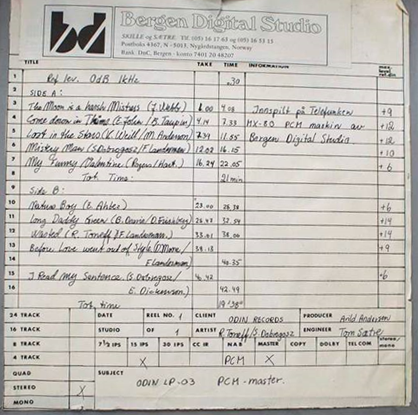 bd
Bergen Digital Studio
SKILLE og SÆTRE: Tlf. (05) 16 17 63 og 16 13 13
Postboks 4367, N - 5013, Nygårdstangen, Norway
Bank: DnC, Bergen - konto 7401 20 48207
TITLE TAKE TIME INFORMATION
1 Ref lev. 0dB 1kHz .30
2 SIDE A:
3 The Moon is a harsh Mistress (J. Webb) 1.00 4.08 Innspilt på Telefunken +9
4 Come down in Time (E. John / B. Taupin) 4.14 7.33 MX-80 PCM maskin av +12
5 Lost in the Stars (K. Weill / M. Anderson) 11.55 Bergen Digital Studio +12
6 Mistery Man (S. Dobrogosz / F. Landesman) 12.02 16.15 +10
7 My Funny Valentine (Rogers / Hart.) 16.24 22.05 +6
8 Tot. Time 21 min
9 Side B:
10 Nature Boy (E. Ahbez) 23.00 26.38 +6
11 Long Daddy Green (B. Dearie / D. Frishberg) 32.54 +14
12 Wasted (R. Toneff / F. Landesman.) 38.06 +14
13 Before Love went out of Style (D. Moore / 38.13 +9
14 F. Landesman) 40.35
15 I Read my Sentence (S. Dobrogosz / 40.42 +6
16 E. Dickinson) 42.49
Tot. time 19'38"
24 TRACK DATE REEL NO. 1 CLIENT ODIN RECORDS PRODUCER Arild Andersen
16 TRACK STUDIO OF 1 ARTIST R. Toneff / S. Dobrogosz ENGINEER Tom Sætre
8 TRACK 7½ IPS 15 IPS 30 IPS CC IR NAB MASTER COPY DOLBY TEL COM stereo/mono
4 TRACK X PCM X
QUAD SUBJECT
STEREO X ODIN LP-03 PCM-master.
MONO